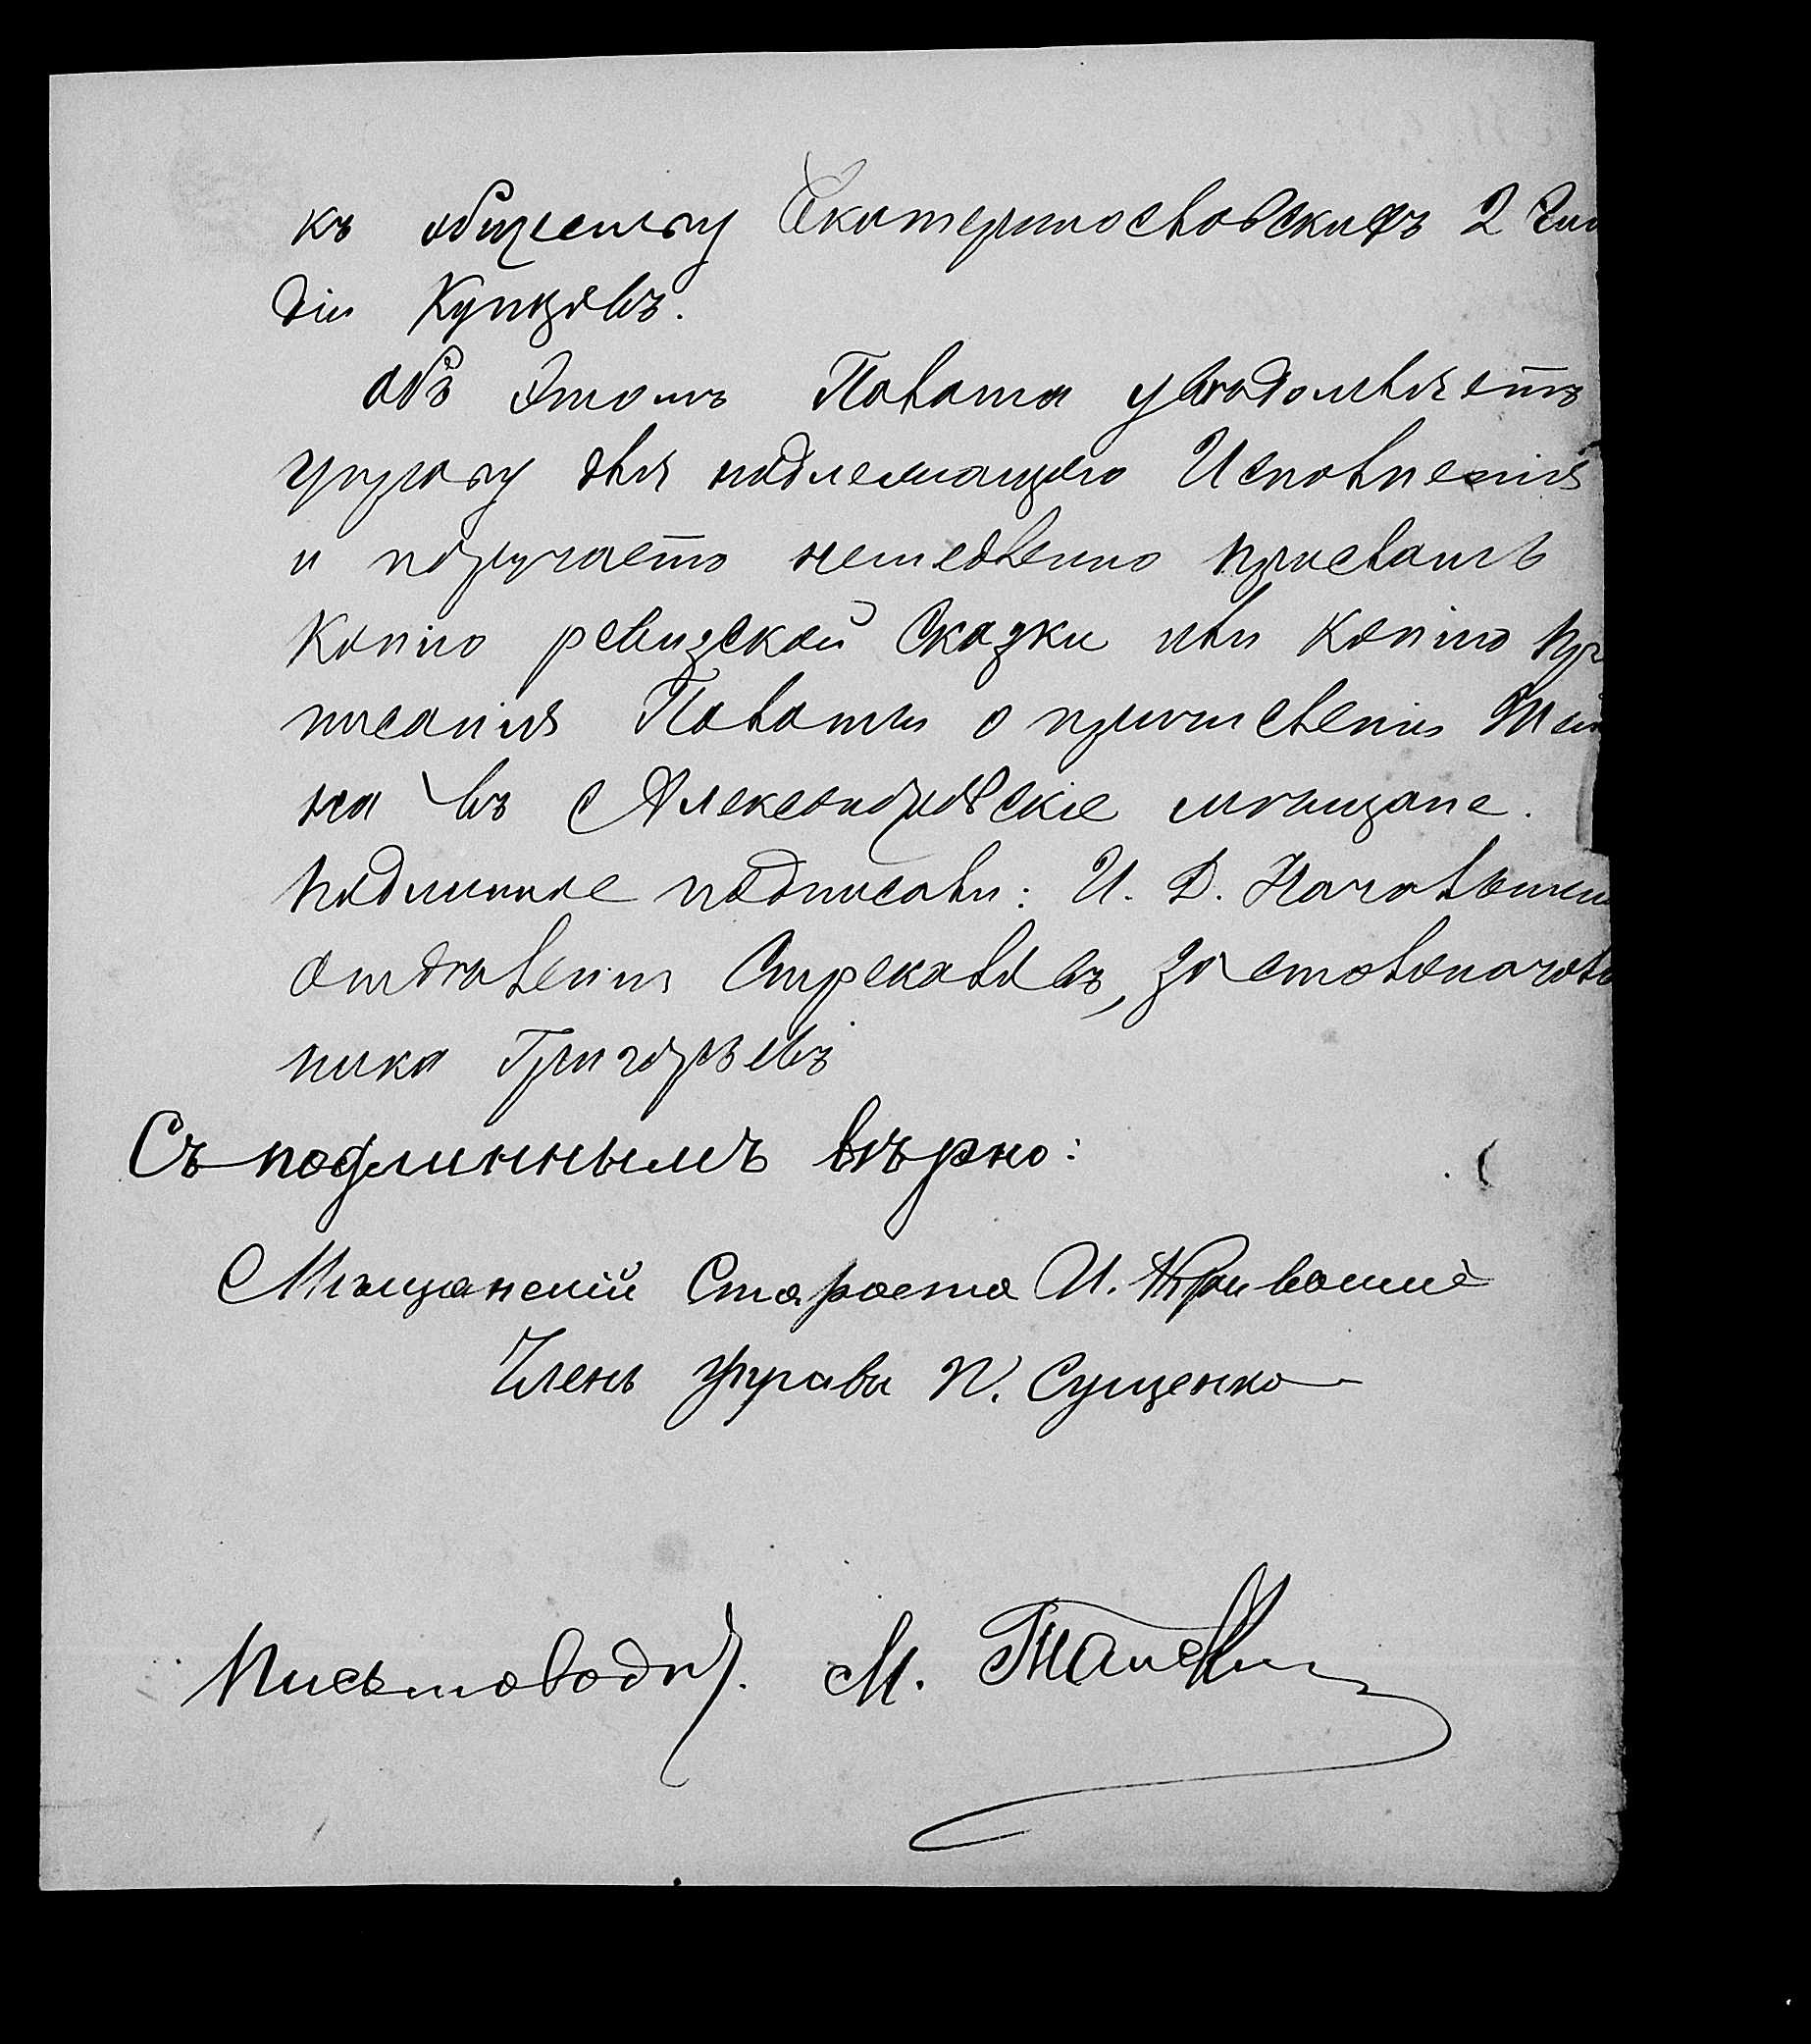 къ обществу Екатеринославскихъ 2 гил
діи Купцовъ.
Объ этомъ Палата увѣдомляетъ
управу для надлежащаго Исполненія
и поручаетъ немедленно прислать
Копію ревизской Сказки или Копію пр
писанія Палаты о причисленіи
на въ Александровскіе мѣщане.
Подлинное подписали: И. Д. Начальни
отдѣленія Стрекаловъ, за столоначаль
ника Григорьевъ
Съ подлиннымъ вѣрно:
Мѣщанскій Староста И.
Членъ Управы П. Сущенко
Письмовод. М.